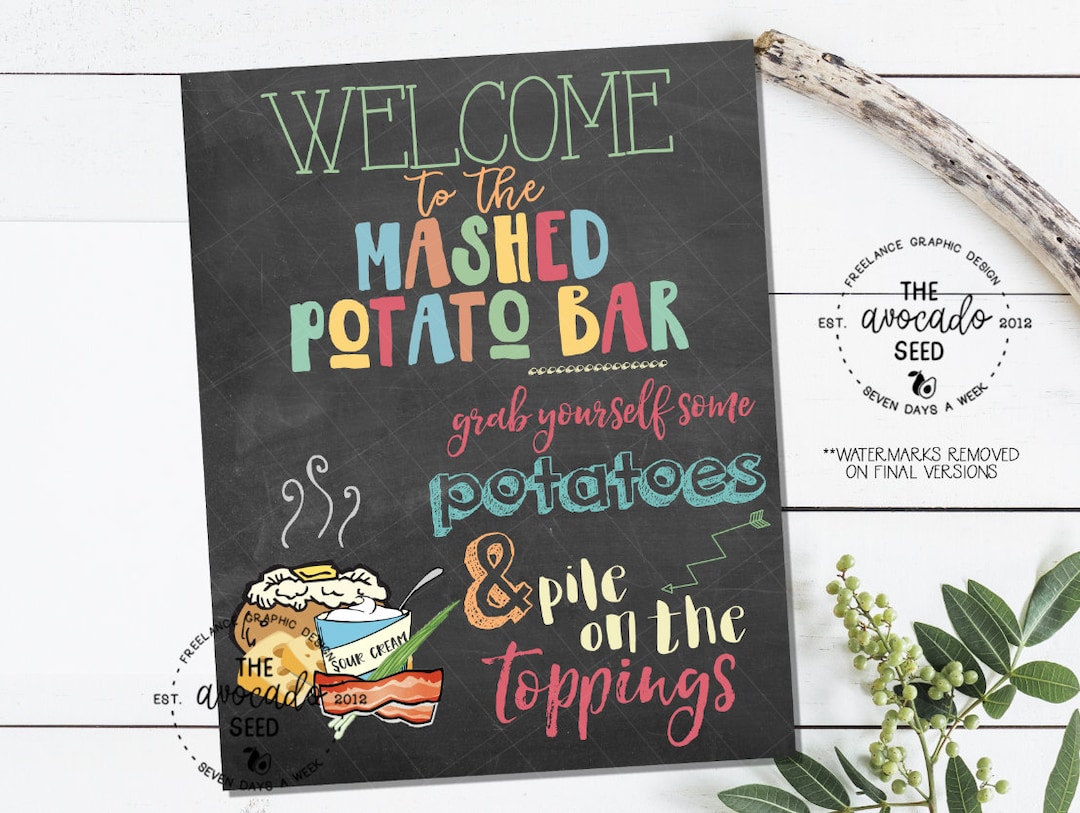 WELCOME
to the
MASHED
POTATO BAR
grab yourself some
potatoes
& pile
on the
toppings
SOUR CREAM
FREELANCE GRAPHIC DESIGN
THE
EST. avocado 2012
SEED
SEVEN DAYS A WEEK
FREELANCE GRAPHIC DESIGN
THE
EST. avocado 2012
SEED
SEVEN DAYS A WEEK
**WATERMARKS REMOVED
ON FINAL VERSIONS